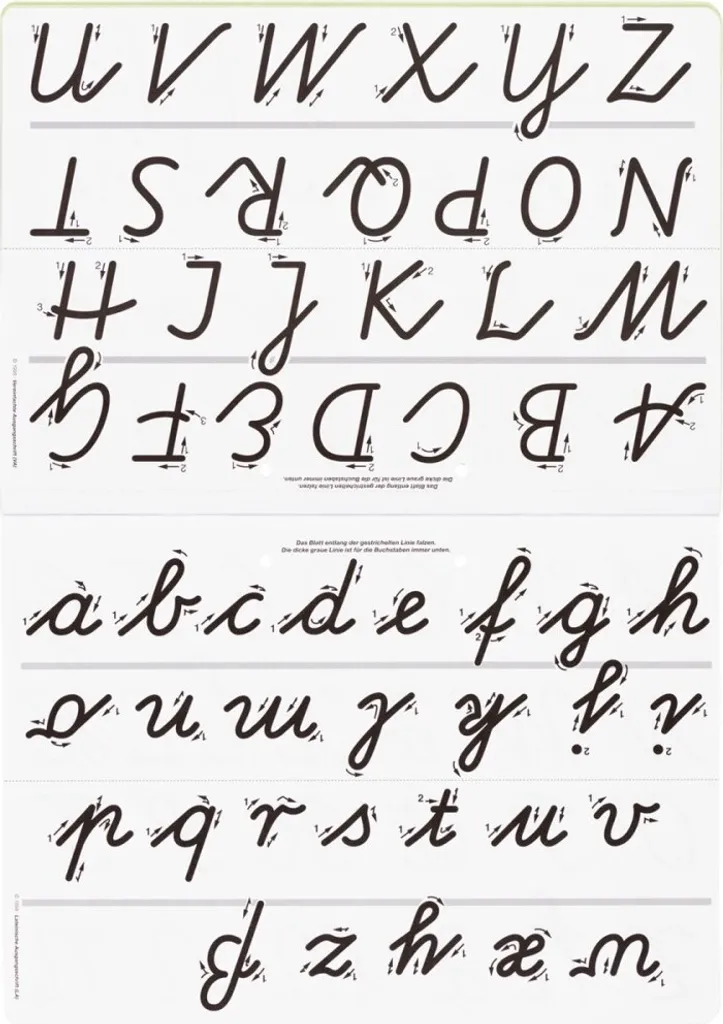 U V W X Y Z
N O P Q R S T
H I J K L M
A B C D E F G
Vereinfachte Ausgangsschrift (VA)
Das Blatt entlang der gestrichelten Linie falzen.
Die dicke graue Linie ist für die Buchstaben immer unten.
Das Blatt entlang der gestrichelten Linie falzen.
Die dicke graue Linie ist für die Buchstaben immer unten.
a b c d e f g h
i j k l m n o
p q r s t u v
w x y z ß
Lateinische Ausgangsschrift (LA)